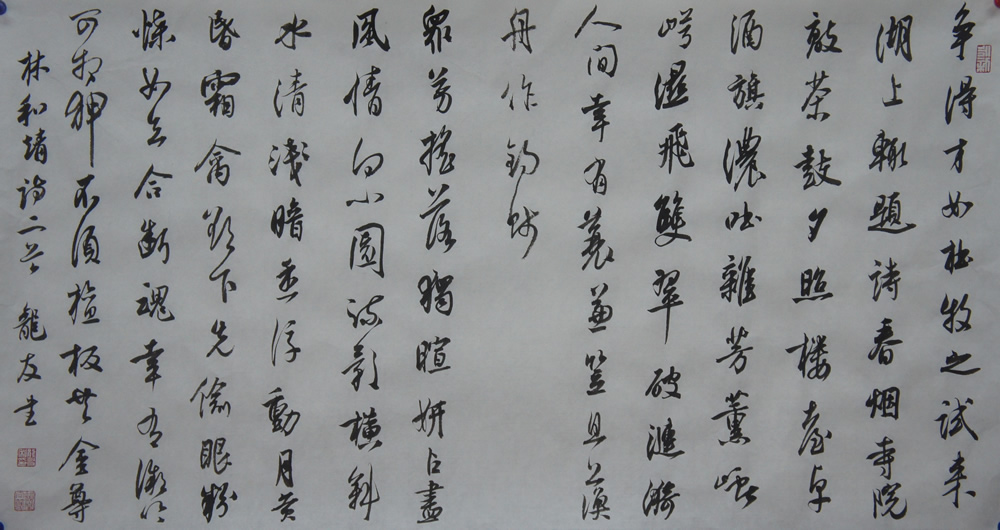 爭得才如杜牧之試來
湖上輒題詩春烟寺院
敲茶鼓夕照樓臺卓
酒旗濃吐雜芳薰巘
崿濕飛雙翠破漣漪
人間幸有蓑兼笠且上漁
舟作釣師
眾芳搖落獨暄妍占盡
風情向小園疏影橫斜
水清淺暗香浮動月黃
昏霜禽欲下先偷眼粉
蝶如知合斷魂幸有微吟
可相狎不須檀板共金尊
林和靖詩二首 龍友書